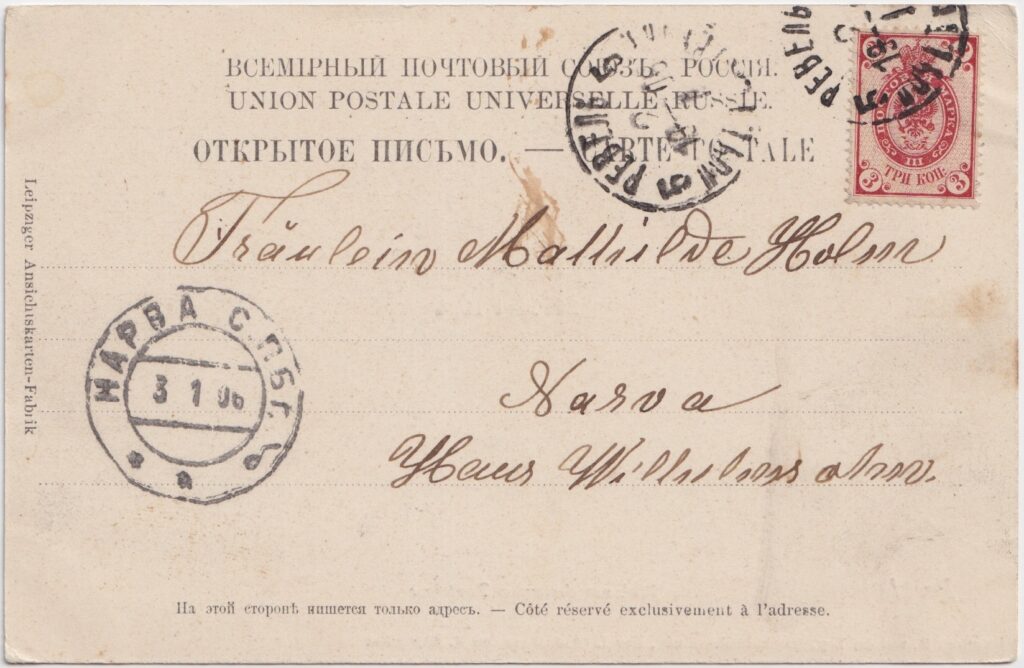 ВСЕМІРНЫЙ ПОЧТОВЫЙ СОЮЗЪ. РОССІЯ.
UNION POSTALE UNIVERSELLE. RUSSIE.
ОТКРЫТОЕ ПИСЬМО. — CARTE POSTALE
РЕВЕЛЬ
5
РЕВЕЛЬ
5
ПОЧТОВАЯ МАРКА
III
3 ТРИ КОП. 3
Fräulein Mathilde Holm
Narva
Haus Wilhelmsohn.
НАРВА С.ПБГ.
3 1 06
Leipziger Ansichtskarten-Fabrik
На этой сторонѣ пишется только адресъ. — Côté réservé exclusivement à l'adresse.